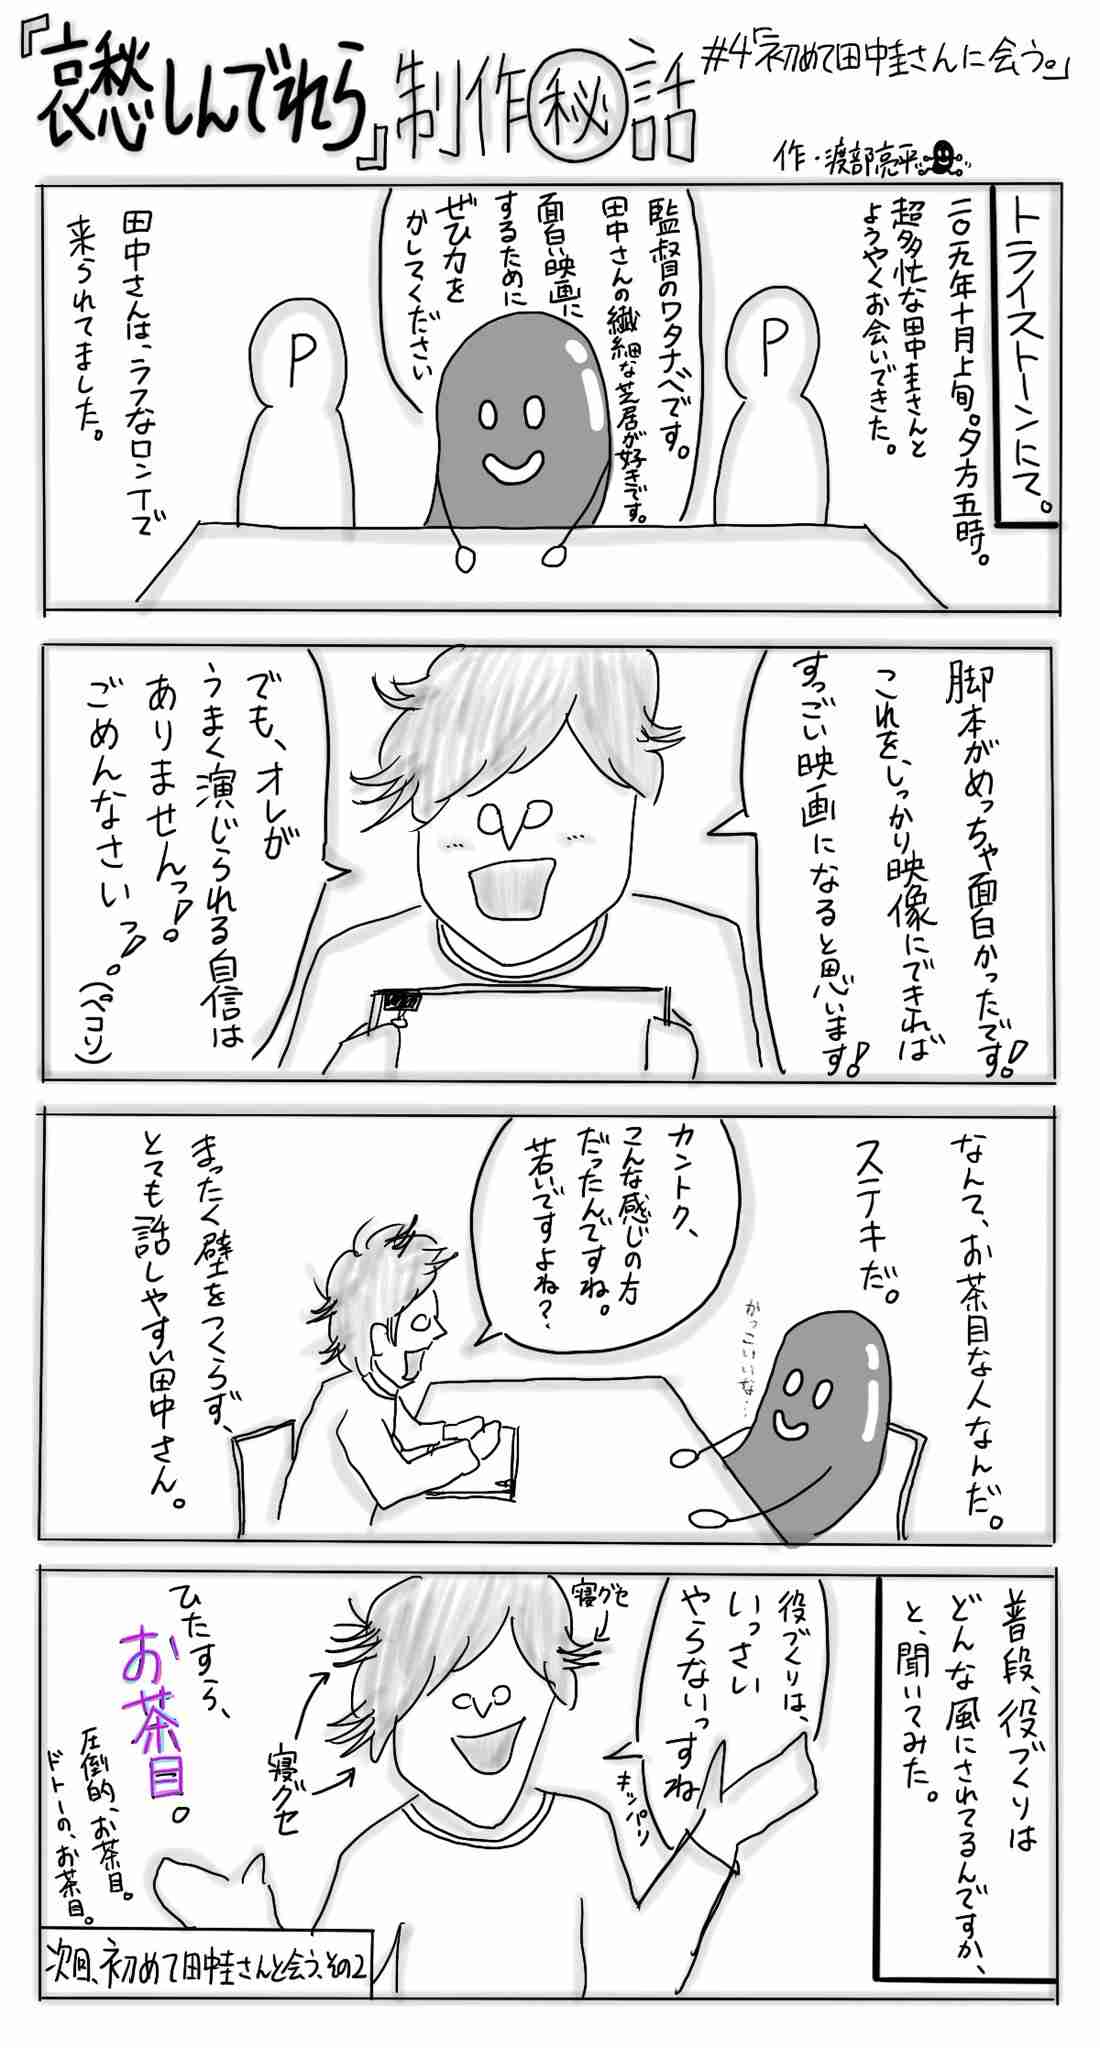 『哀愁しんでれら』制作㊙話
#4「初めて田中圭さんに会う。」
作・渡部亮平
トライストーンにて。
二〇一九年十月上旬。夕方五時。
超多忙な田中圭さんと
ようやくお会いできた。
監督のワタナベです。
田中さんの繊細な芝居が好きです。
面白い映画に
するために
ぜひ力を
かしてください
P
P
田中さんは、ラフなロンTで
来られてました。
脚本がめっちゃ面白かったです!
これを、しっかり映像にできれば
すっごい映画になると思います!
でも、オレが
うまく演じられる自信は
ありませんっ!
ごめんなさいっ!
(ペコリ)
なんて、お茶目な人なんだ。
ステキだ。
かっこいいな…
カントク、
こんな感じの方
だったんですね。
若いですよね?
まったく壁をつくらず、
とても話しやすい田中さん。
普段、役づくりは
どんな風にされてるんですか、
と、聞いてみた。
役づくりは、
いっさい
やらないっすね
キッパリ
寝グセ
寝グセ
ひたすら、
お茶目。
圧倒的、お茶目。
ドトーの、お茶目。
次回、初めて田中圭さんと会う、その2